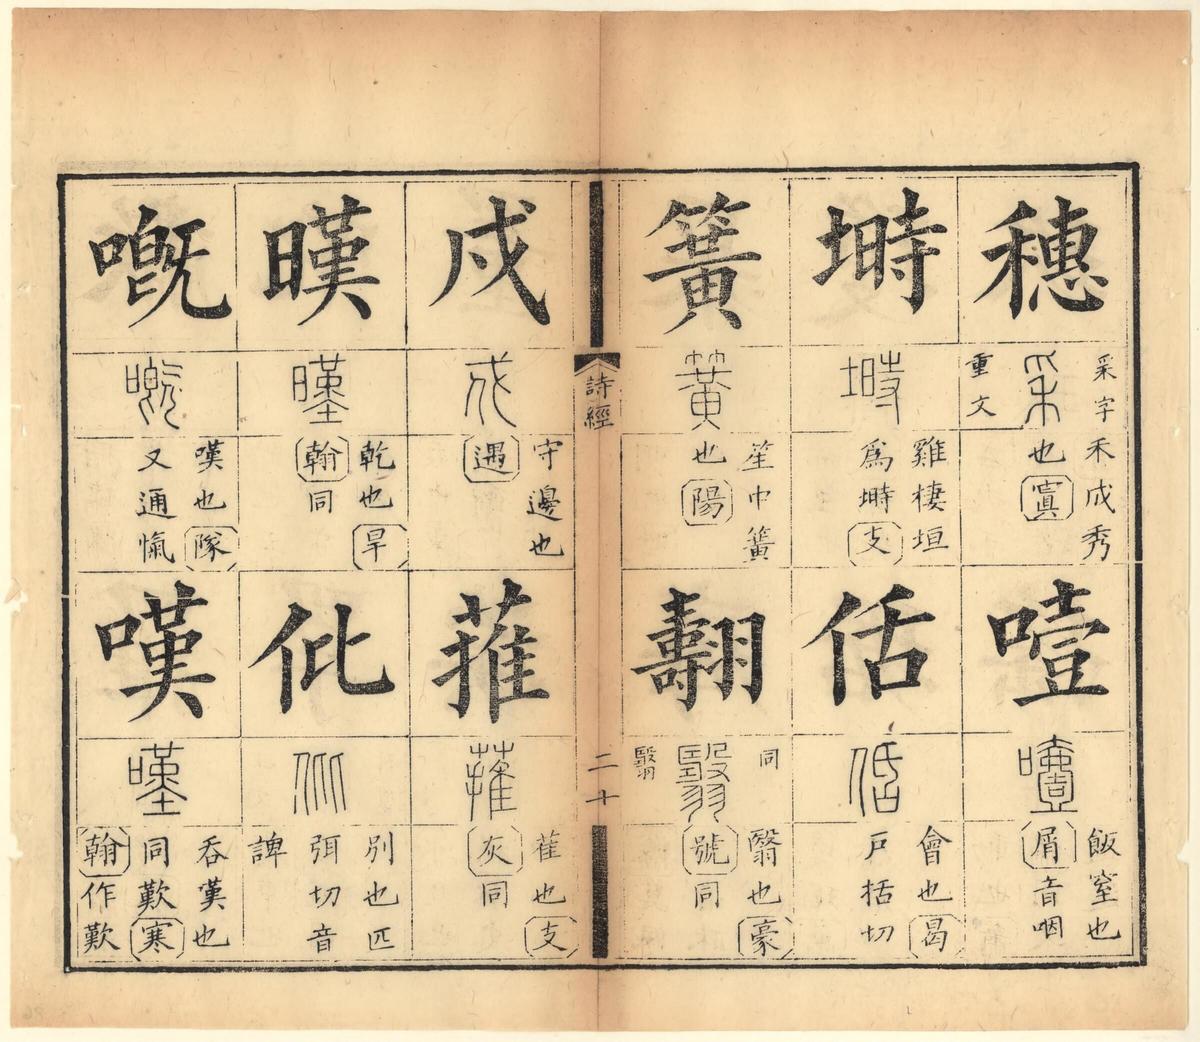 穗
采
采字
重文
禾成秀
也寘
噎
噎
飯窒也
屑音咽
塒
塒
雞棲垣
爲塒支
佸
佸
會也曷
戶括切
簧
簧
笙中簧
也陽
翿
翳
同
翳
翳也豪
號同
詩經
二十
戍
戍
守邊也
遇
蓷
蓷
萑也支
灰同
暵
暵
乾也旱
翰同
仳
仳
別也匹
弭切音
諀
嘅
嘅
嘆也隊
又通愾
嘆
嘆
吞嘆也
同歎寒
翰作歎